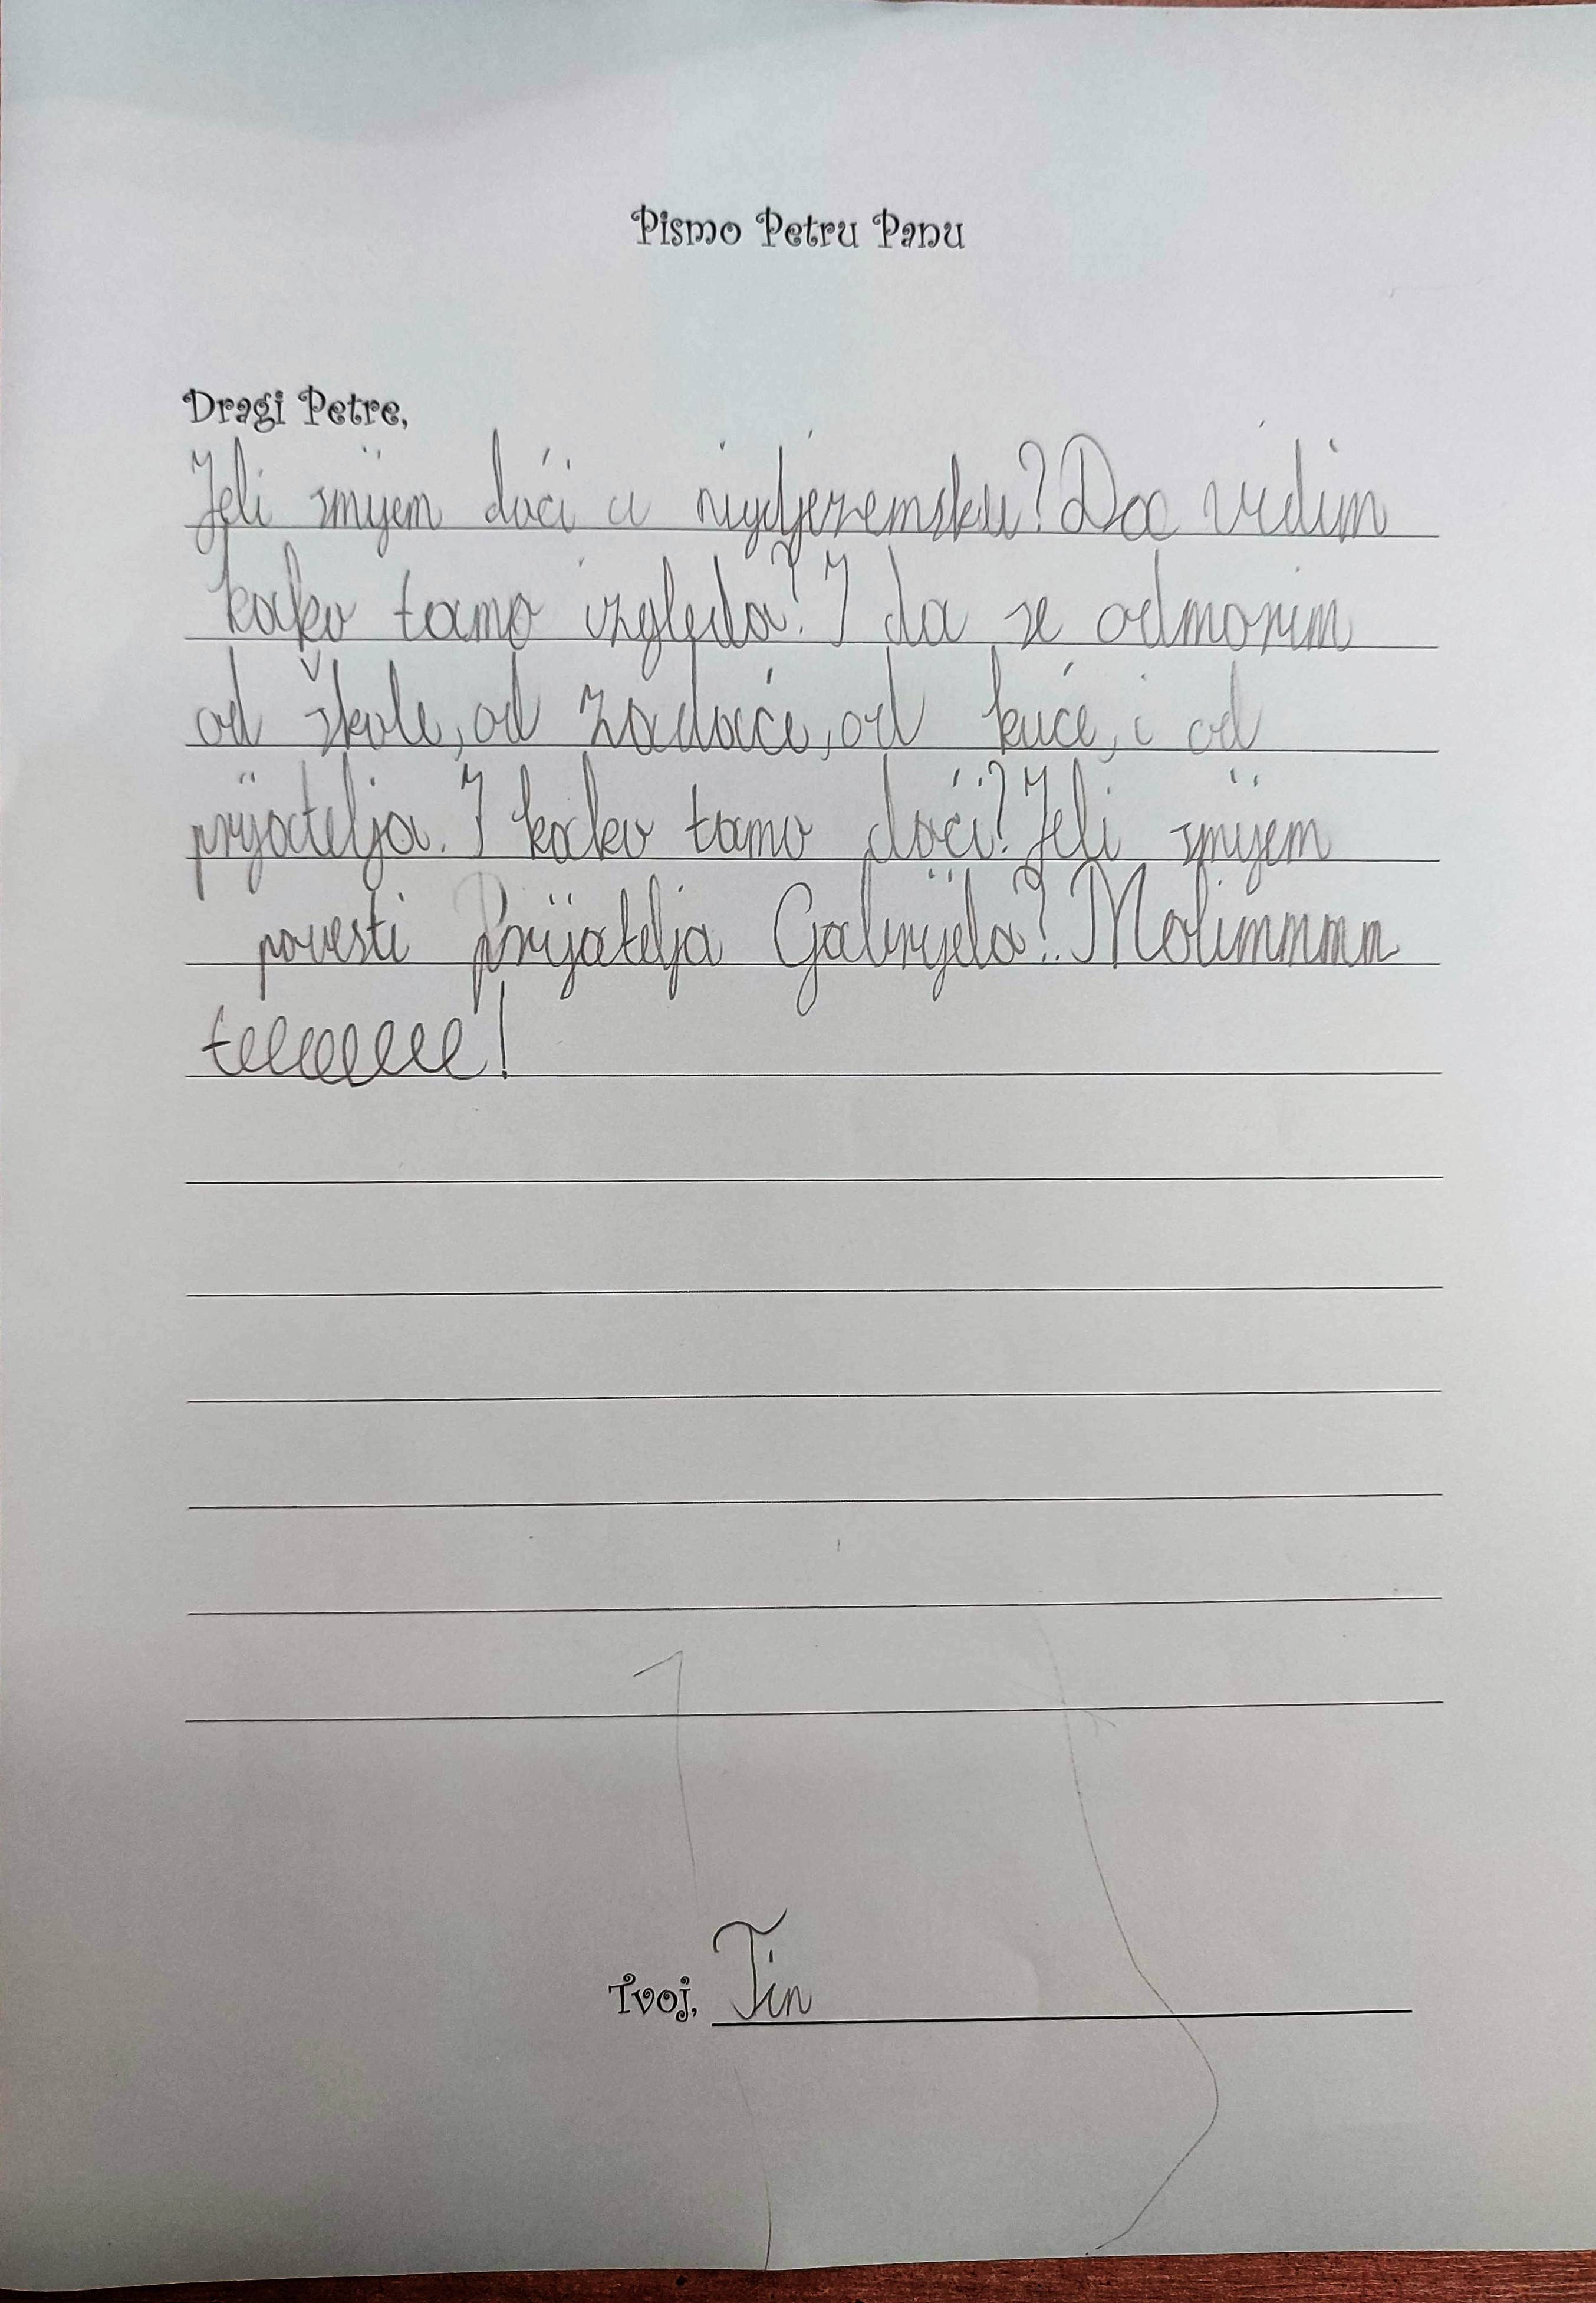 Pismo Petru Panu
Dragi Petre,
Jeli smijem doći u nigdjezemsku? Da vidim
kako tamo izgleda? I da se odmorim
od škole, od zadaće, od kuće, i od
prijatelja. I kako tamo doći? Jeli smijem
povesti Prijatelja Gabrijela? Molimmmm
teeeeeeee!
Tvoj, Tin